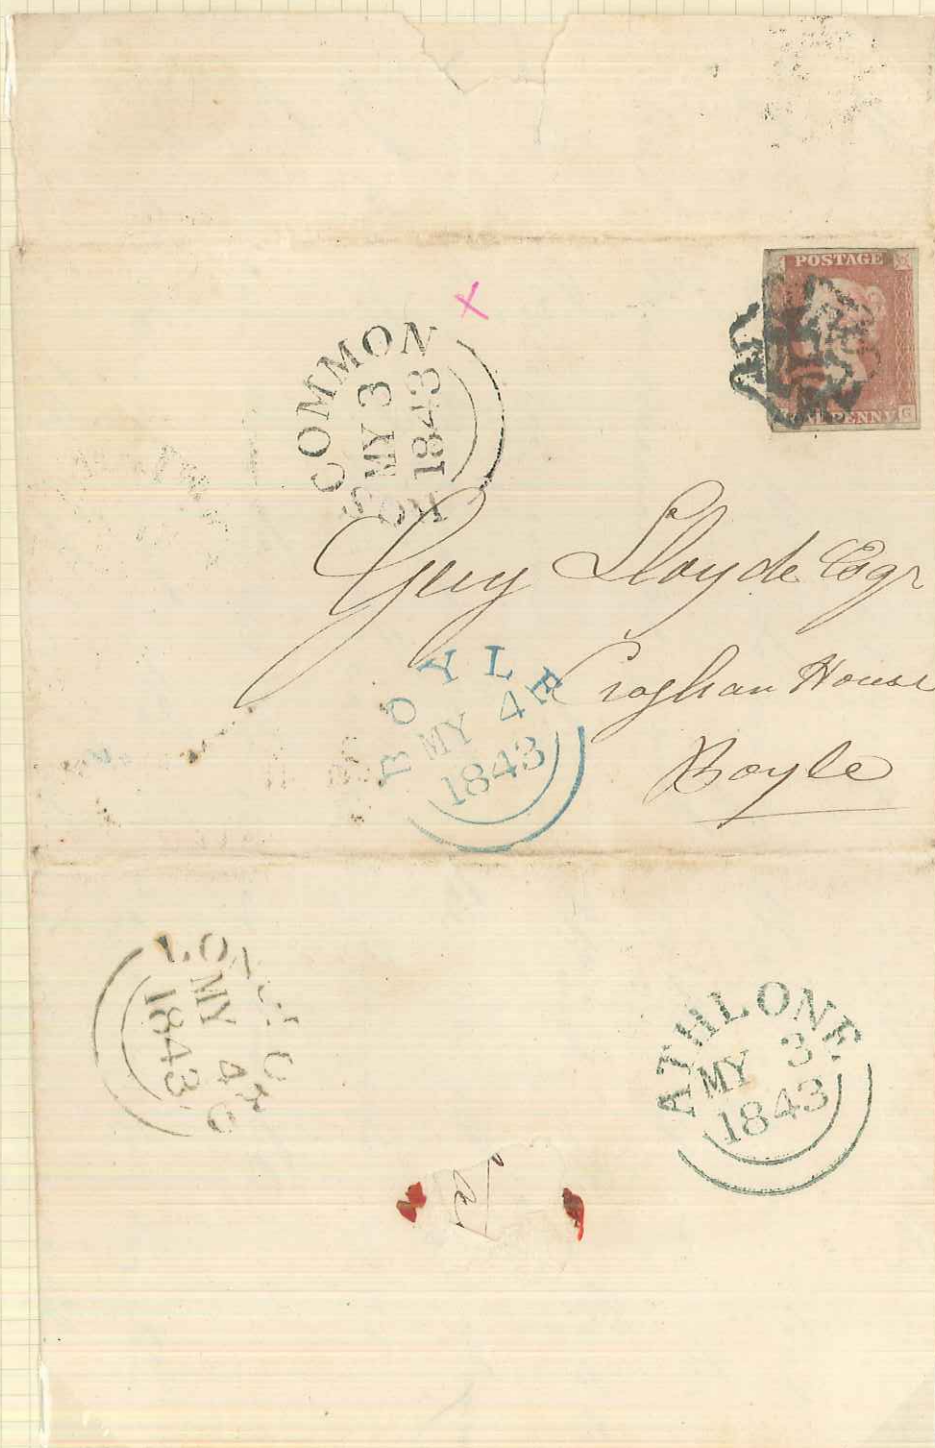 POSTAGE
PENNY
G
X
ROSCOMMON
MY 3
1843
Guy Lloyde Esqr
Croghan House
Boyle
BOYLE
MY 4
1843
LONGFORD
MY 4
1843
ATHLONE
MY 3
1843